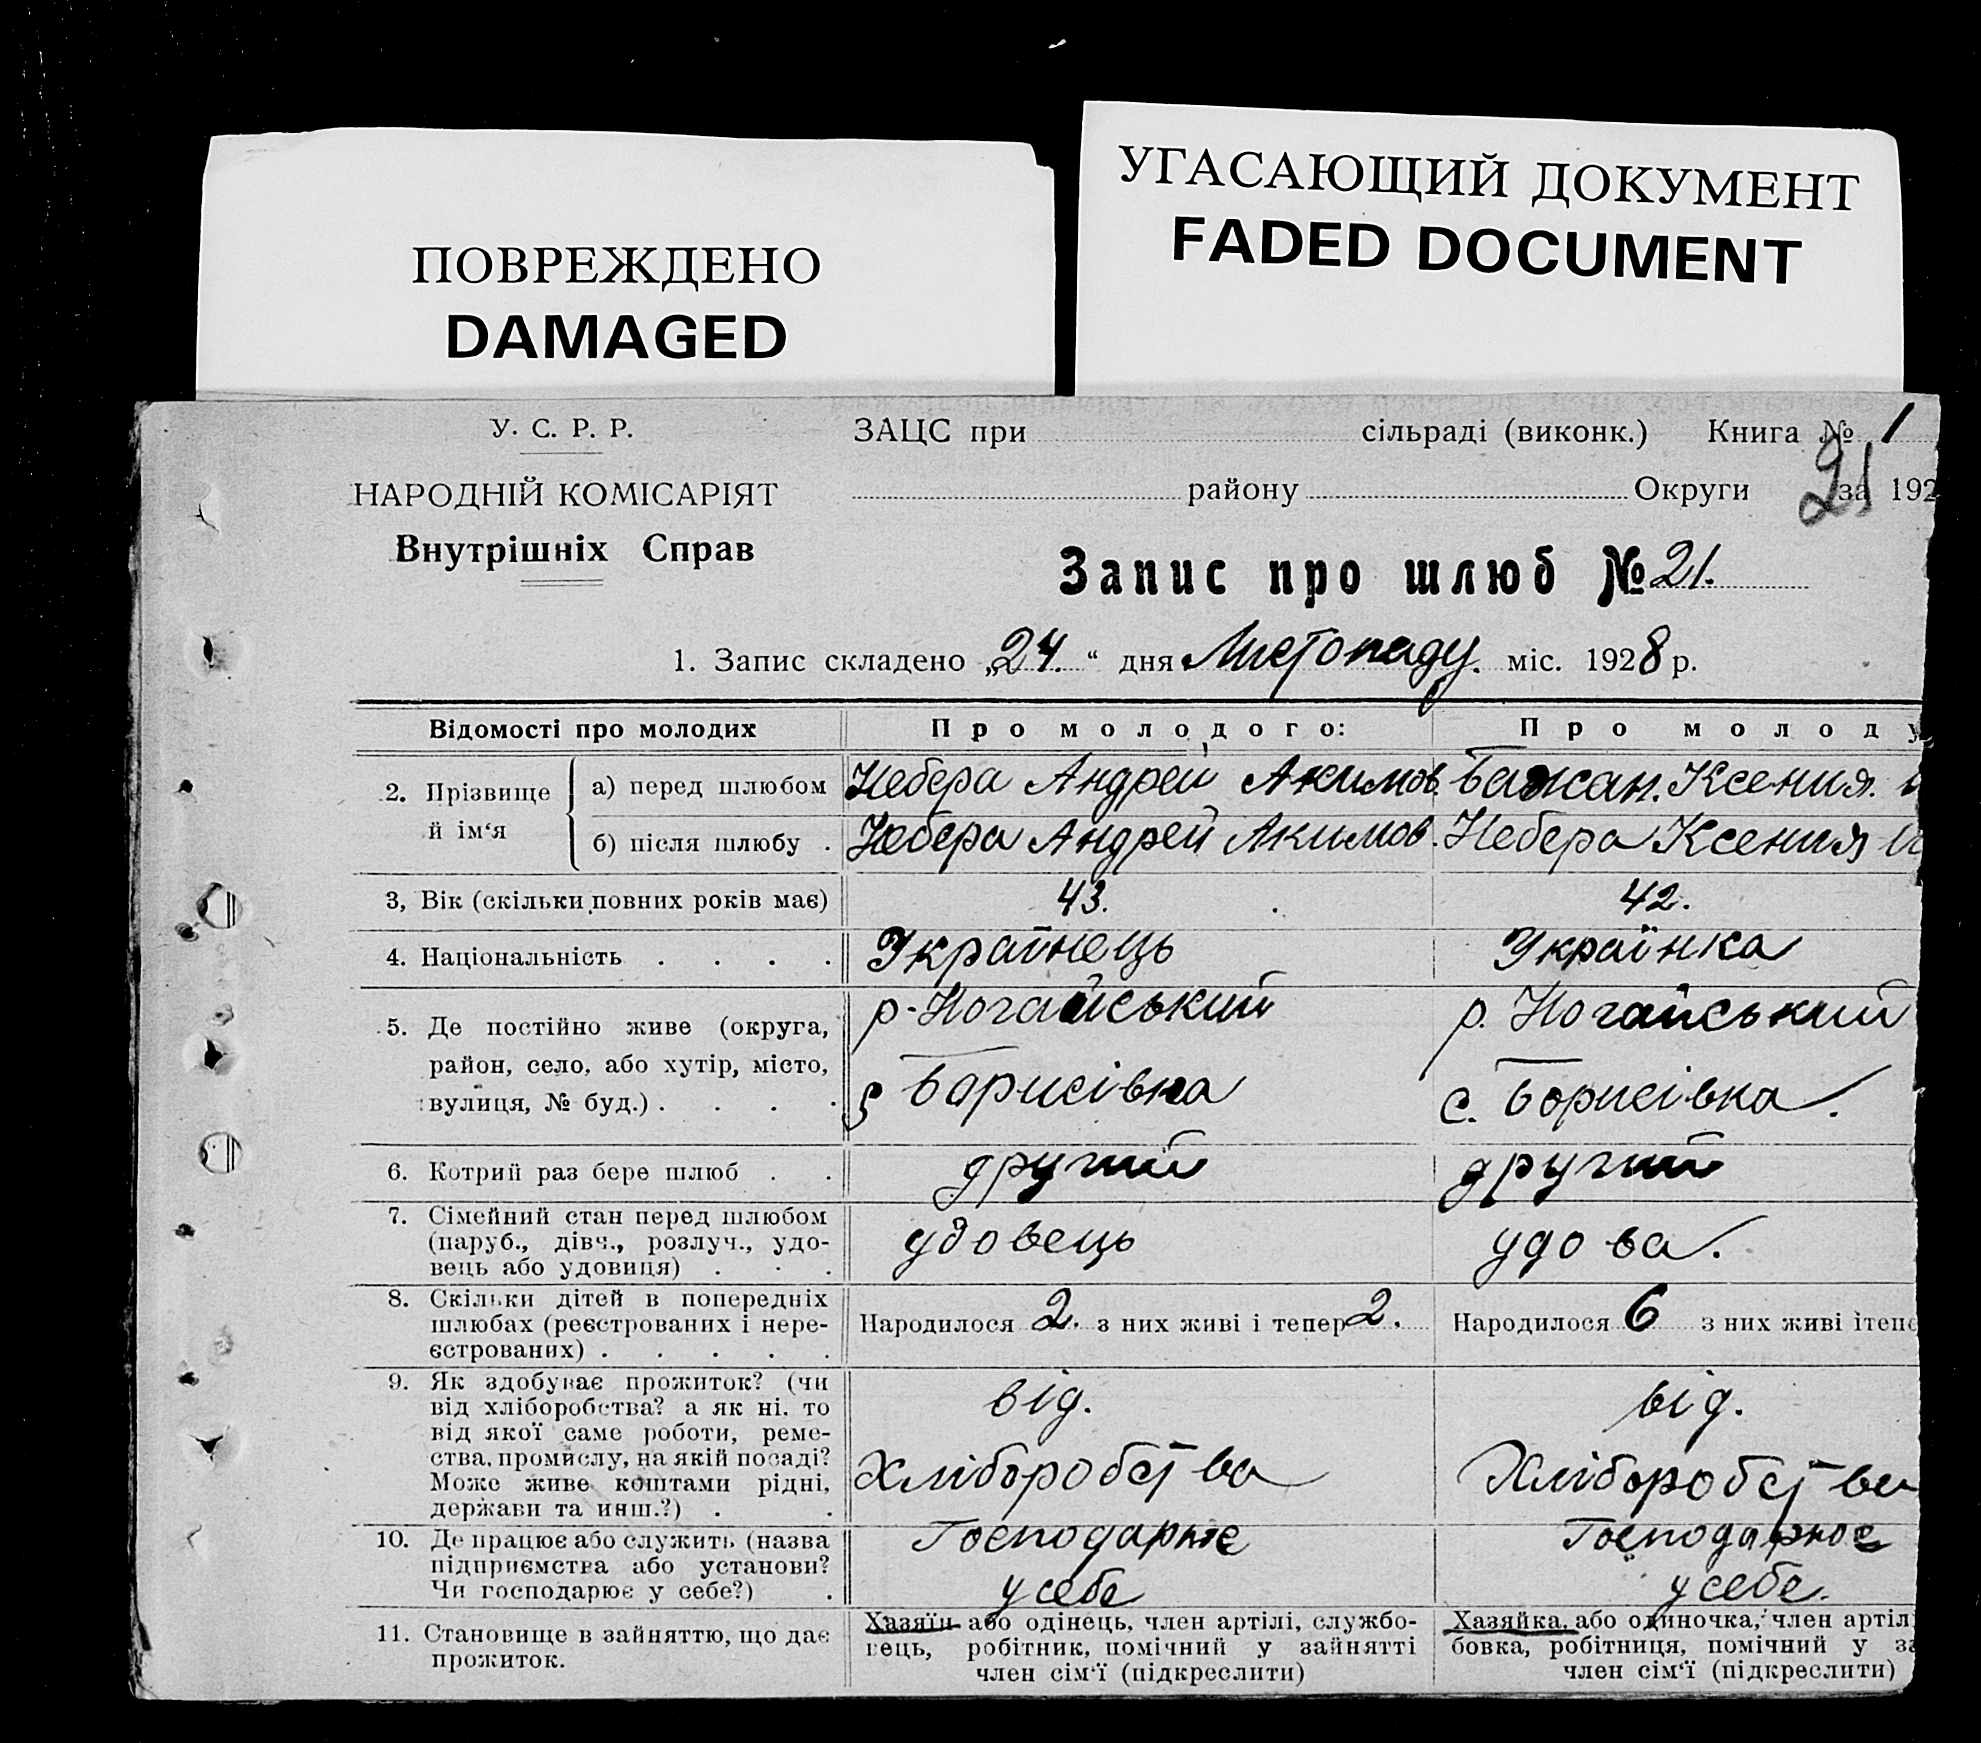 ПОВРЕЖДЕНО
DAMAGED
УГАСАЮЩИЙ ДОКУМЕНТ
FADED DOCUMENT
У. С. Р. Р.
НАРОДНІЙ КОМІСАРІЯТ
Внутрішніх Справ
ЗАЦС при сільраді (виконк.) Книга № 1
району Округи за 192
21
Запис про шлюб № 21.
1. Запис складено „24.“ дня Листопаду. міс. 1928 р.
Відомості про молодих
Про молодого:
Про молоду
2. Прізвище й ім‘я
а) перед шлюбом
Небера Андрей Акимов.
Бажан. Ксения.
б) після шлюбу .
Небера Андрей Акимов.
Небера Ксения
3, Вік (скільки повних років має)
43.
42.
4. Національність . . . .
Украïнець
Украïнка
5. Де постійно живе (округа,
район, село, або хутір, місто,
вулиця, № буд.) . . . .
р-Ногайський
Борисівка
р. Ногайський
с. Борисівка.
6. Котрий раз бере шлюб . .
другий
другий
7. Сімейний стан перед шлюбом
(паруб., дівч., розлуч., удо-
вець або удовиця) . . .
удовець
удова.
8. Скільки дітей в попередніх
шлюбах (реєстрованих і нере-
єстрованих) . . . . .
Народилося 2. з них живі і тепер 2.
Народилося 6 з них живі і тепе
9. Як здобуває прожиток? (чи
від хліборобства? а як ні, то
від якої саме роботи, реме-
ства, промислу, на якій посаді?
Може живе коштами рідні,
держави та инш.?) . .
від.
Хліборобства
від.
Хліборобства
10. Де працює або служить (назва
підприємства або установи?
Чи господарює у себе?) .
Господарює
у себе
Господарює
у себе.
11. Становище в зайняттю, що дає
прожиток.
Хазяїн або одінець, член артілі, службо-
вець, робітник, помічний у зайнятті
член сім‘ї (підкреслити)
Хазяйка, або одиночка, член артіл
бовка, робітниця, помічний у за
член сім‘ї (підкреслити)